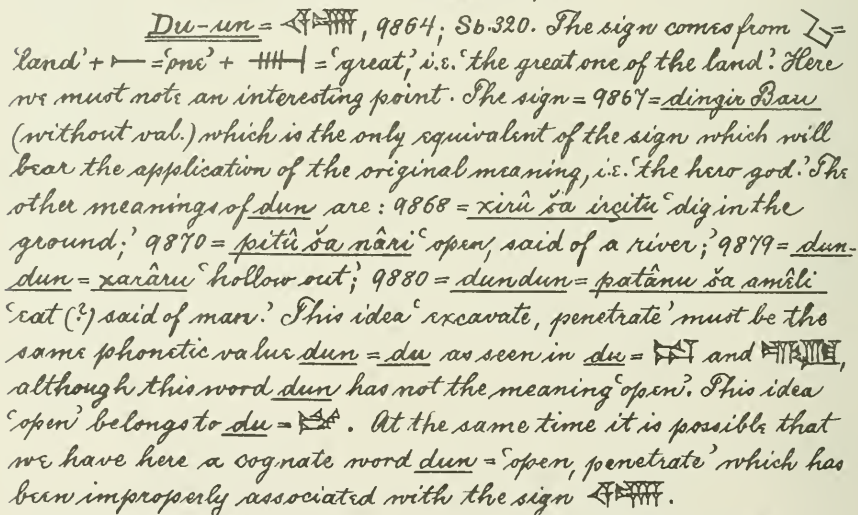 Du-un = , 9864; Sb. 320. The sign comes from =
'land' + = 'one' + = 'great', i.e. 'the great one of the land.' Here
we must note an interesting point. The sign = 9867 = dingir Bau
(without val.) which is the only equivalent of the sign which will
bear the application of the original meaning, i.e. 'the hero god.' The
other meanings of dun are: 9868 = xirû ša irçitu 'dig in the
ground;' 9870 = pitû ša nâri 'open, said of a river;' 9879 = dun-
dun = xarâru 'hollow out;' 9880 = dundun = patânu ša amêli
'eat (?) said of man.' This idea 'excavate, penetrate' must be the
same phonetic value dun = du as seen in du = and ,
although this word dun has not the meaning 'open'. This idea
'open' belongs to du = . At the same time it is possible that
we have here a cognate word dun = 'open, penetrate' which has
been improperly associated with the sign .